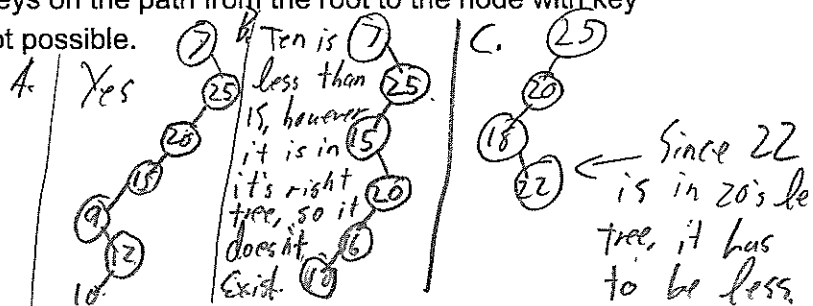 eys on the path from the root to the node with key
ot possible.
A.
Yes
7
25
20
15
9
12
10
B.
Ten is
less than
15, however
it is in
it's right
tree, so it
doesn't
Exist.
7
25
15
20
16
10
C.
25
20
18
22
Since 22
is in 20's le
tree, it has
to be less